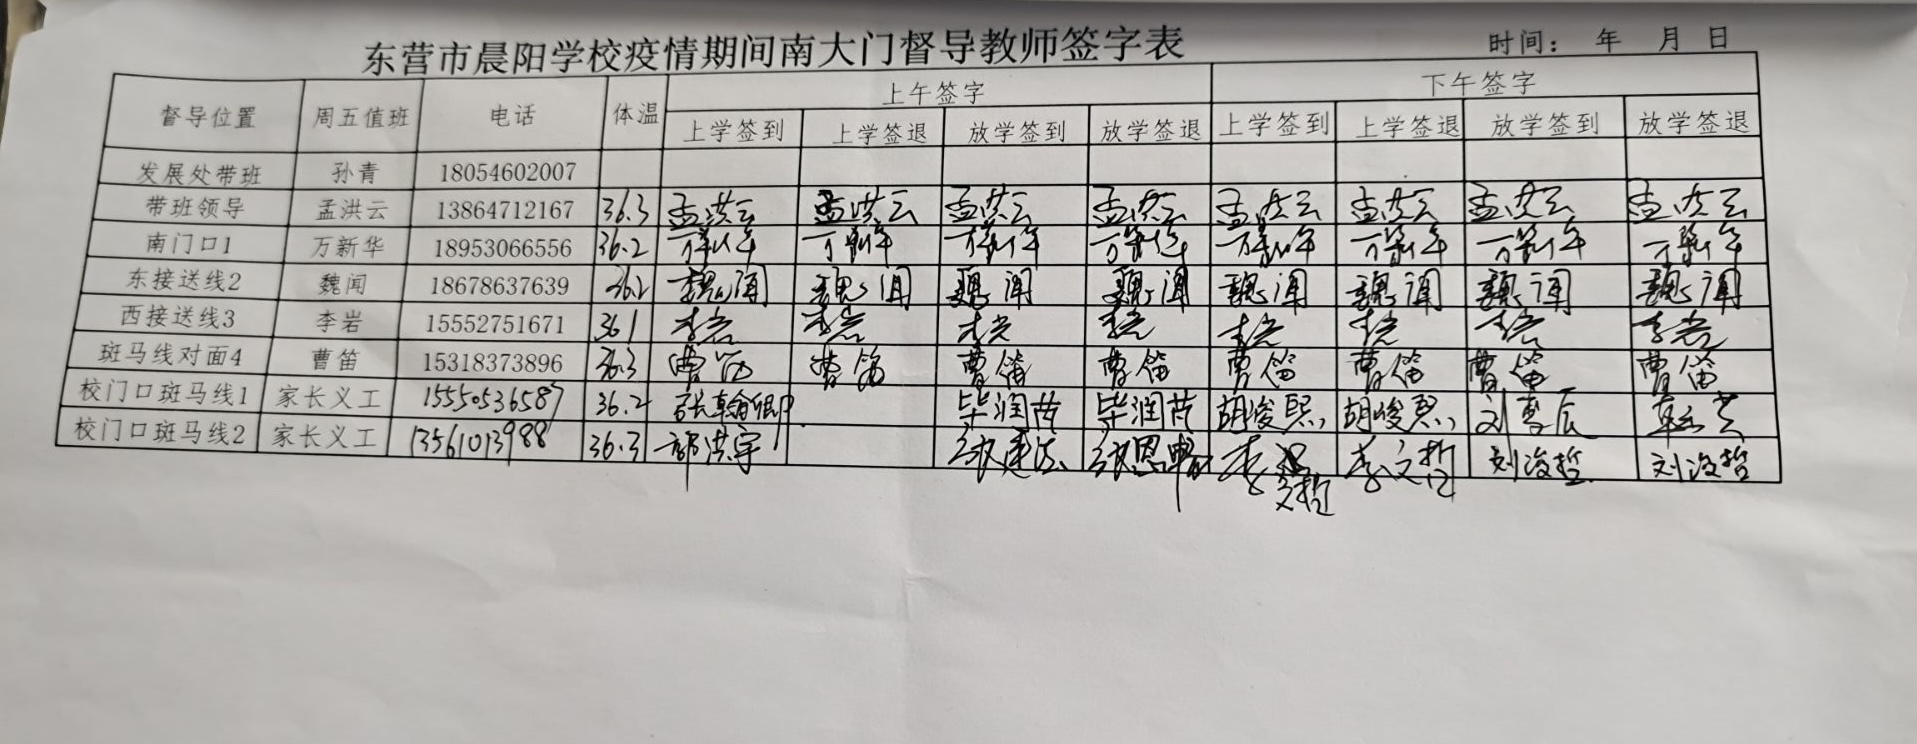 东营市晨阳学校疫情期间南大门督导教师签字表 时间： 年 月 日
督导位置 周五值班 电话 体温 上午签字 下午签字
上学签到 上学签退 放学签到 放学签退 上学签到 上学签退 放学签到 放学签退
发展处带班 孙青 18054602007
带班领导 孟洪云 13864712167 36.3 孟洪云 孟洪云 孟洪云 孟洪云 孟洪云 孟洪云 孟洪云 孟洪云
南门口1 万新华 18953066556 36.2 万新华 万新华 万新华 万新华 万新华 万新华 万新华 万新华
东接送线2 魏闻 18678637639 36.2 魏闻 魏闻 魏闻 魏闻 魏闻 魏闻 魏闻 魏闻
西接送线3 李岩 15552751671 36.1 李岩 李岩 李岩 李岩 李岩 李岩 李岩 李岩
斑马线对面4 曹笛 15318373896 36.3 曹笛 曹笛 曹笛 曹笛 曹笛 曹笛 曹笛 曹笛
校门口斑马线1 家长义工 15550536587 36.2 毕润茁 毕润茁 胡俊熙 胡峻熙
校门口斑马线2 家长义工 13561013988 36.3 郭洪宇 李文哲 李文哲 刘浚哲 刘浚哲